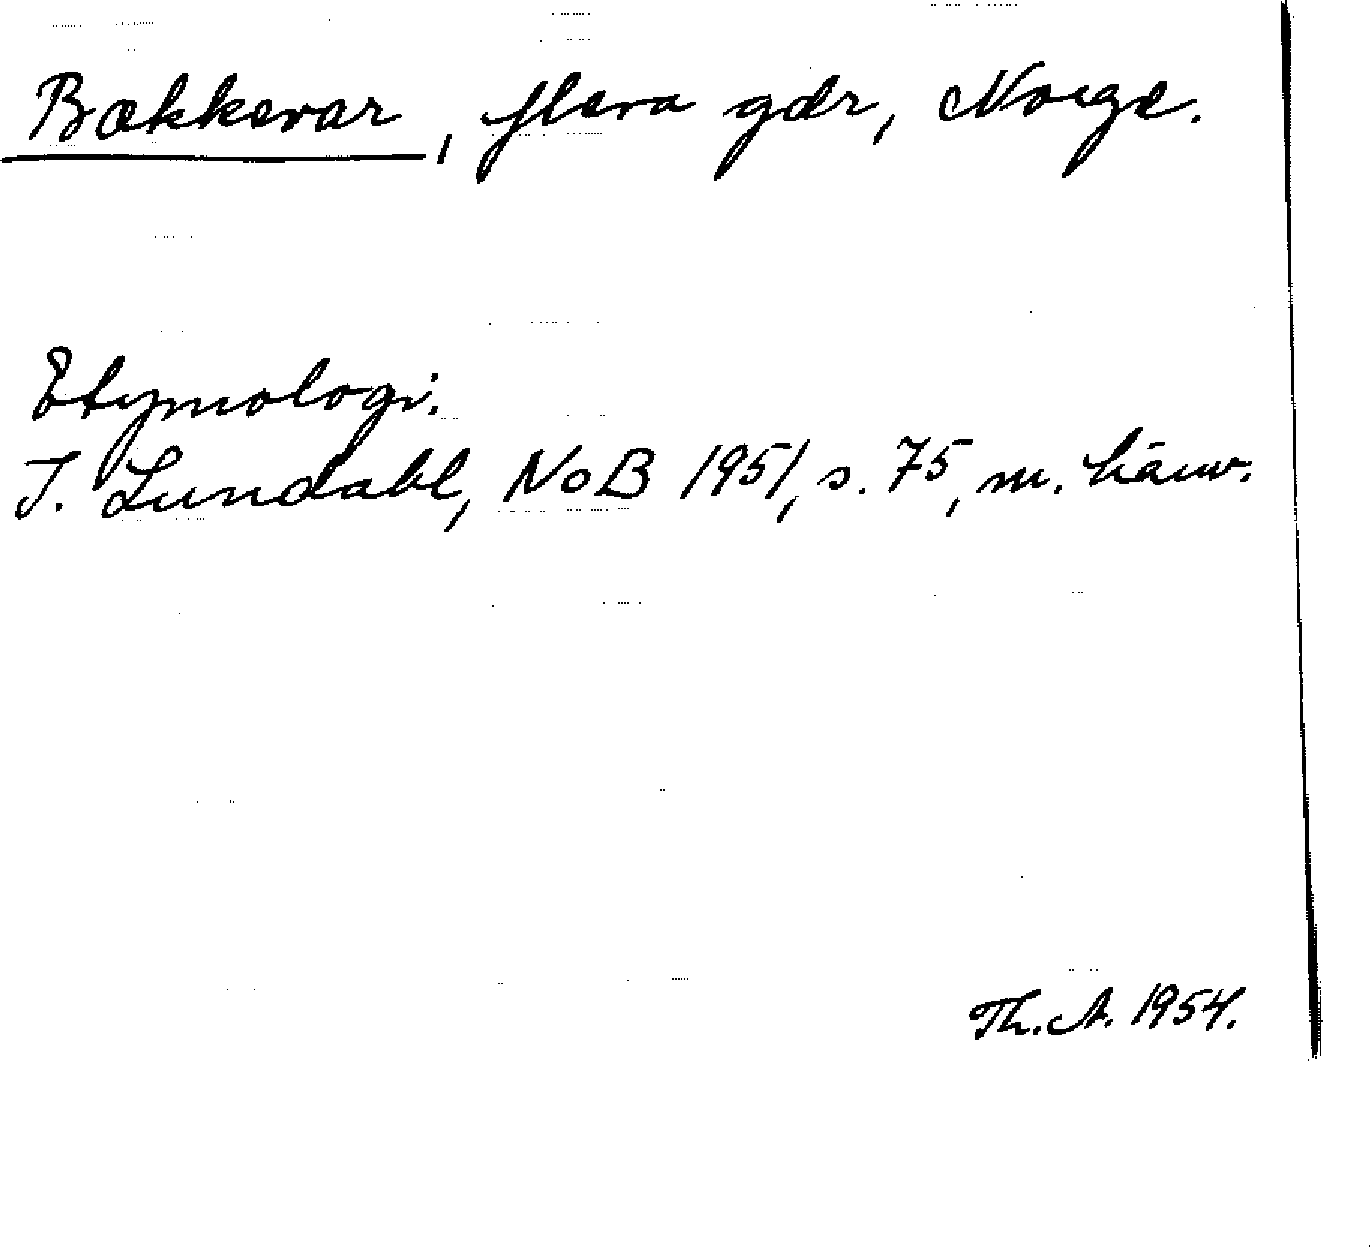 Bækkevar, flera gdr, Norge.
Etymologi.
I. Lundahl, NoB 1951, s. 75, m. hänv.
Th. A. 1954.